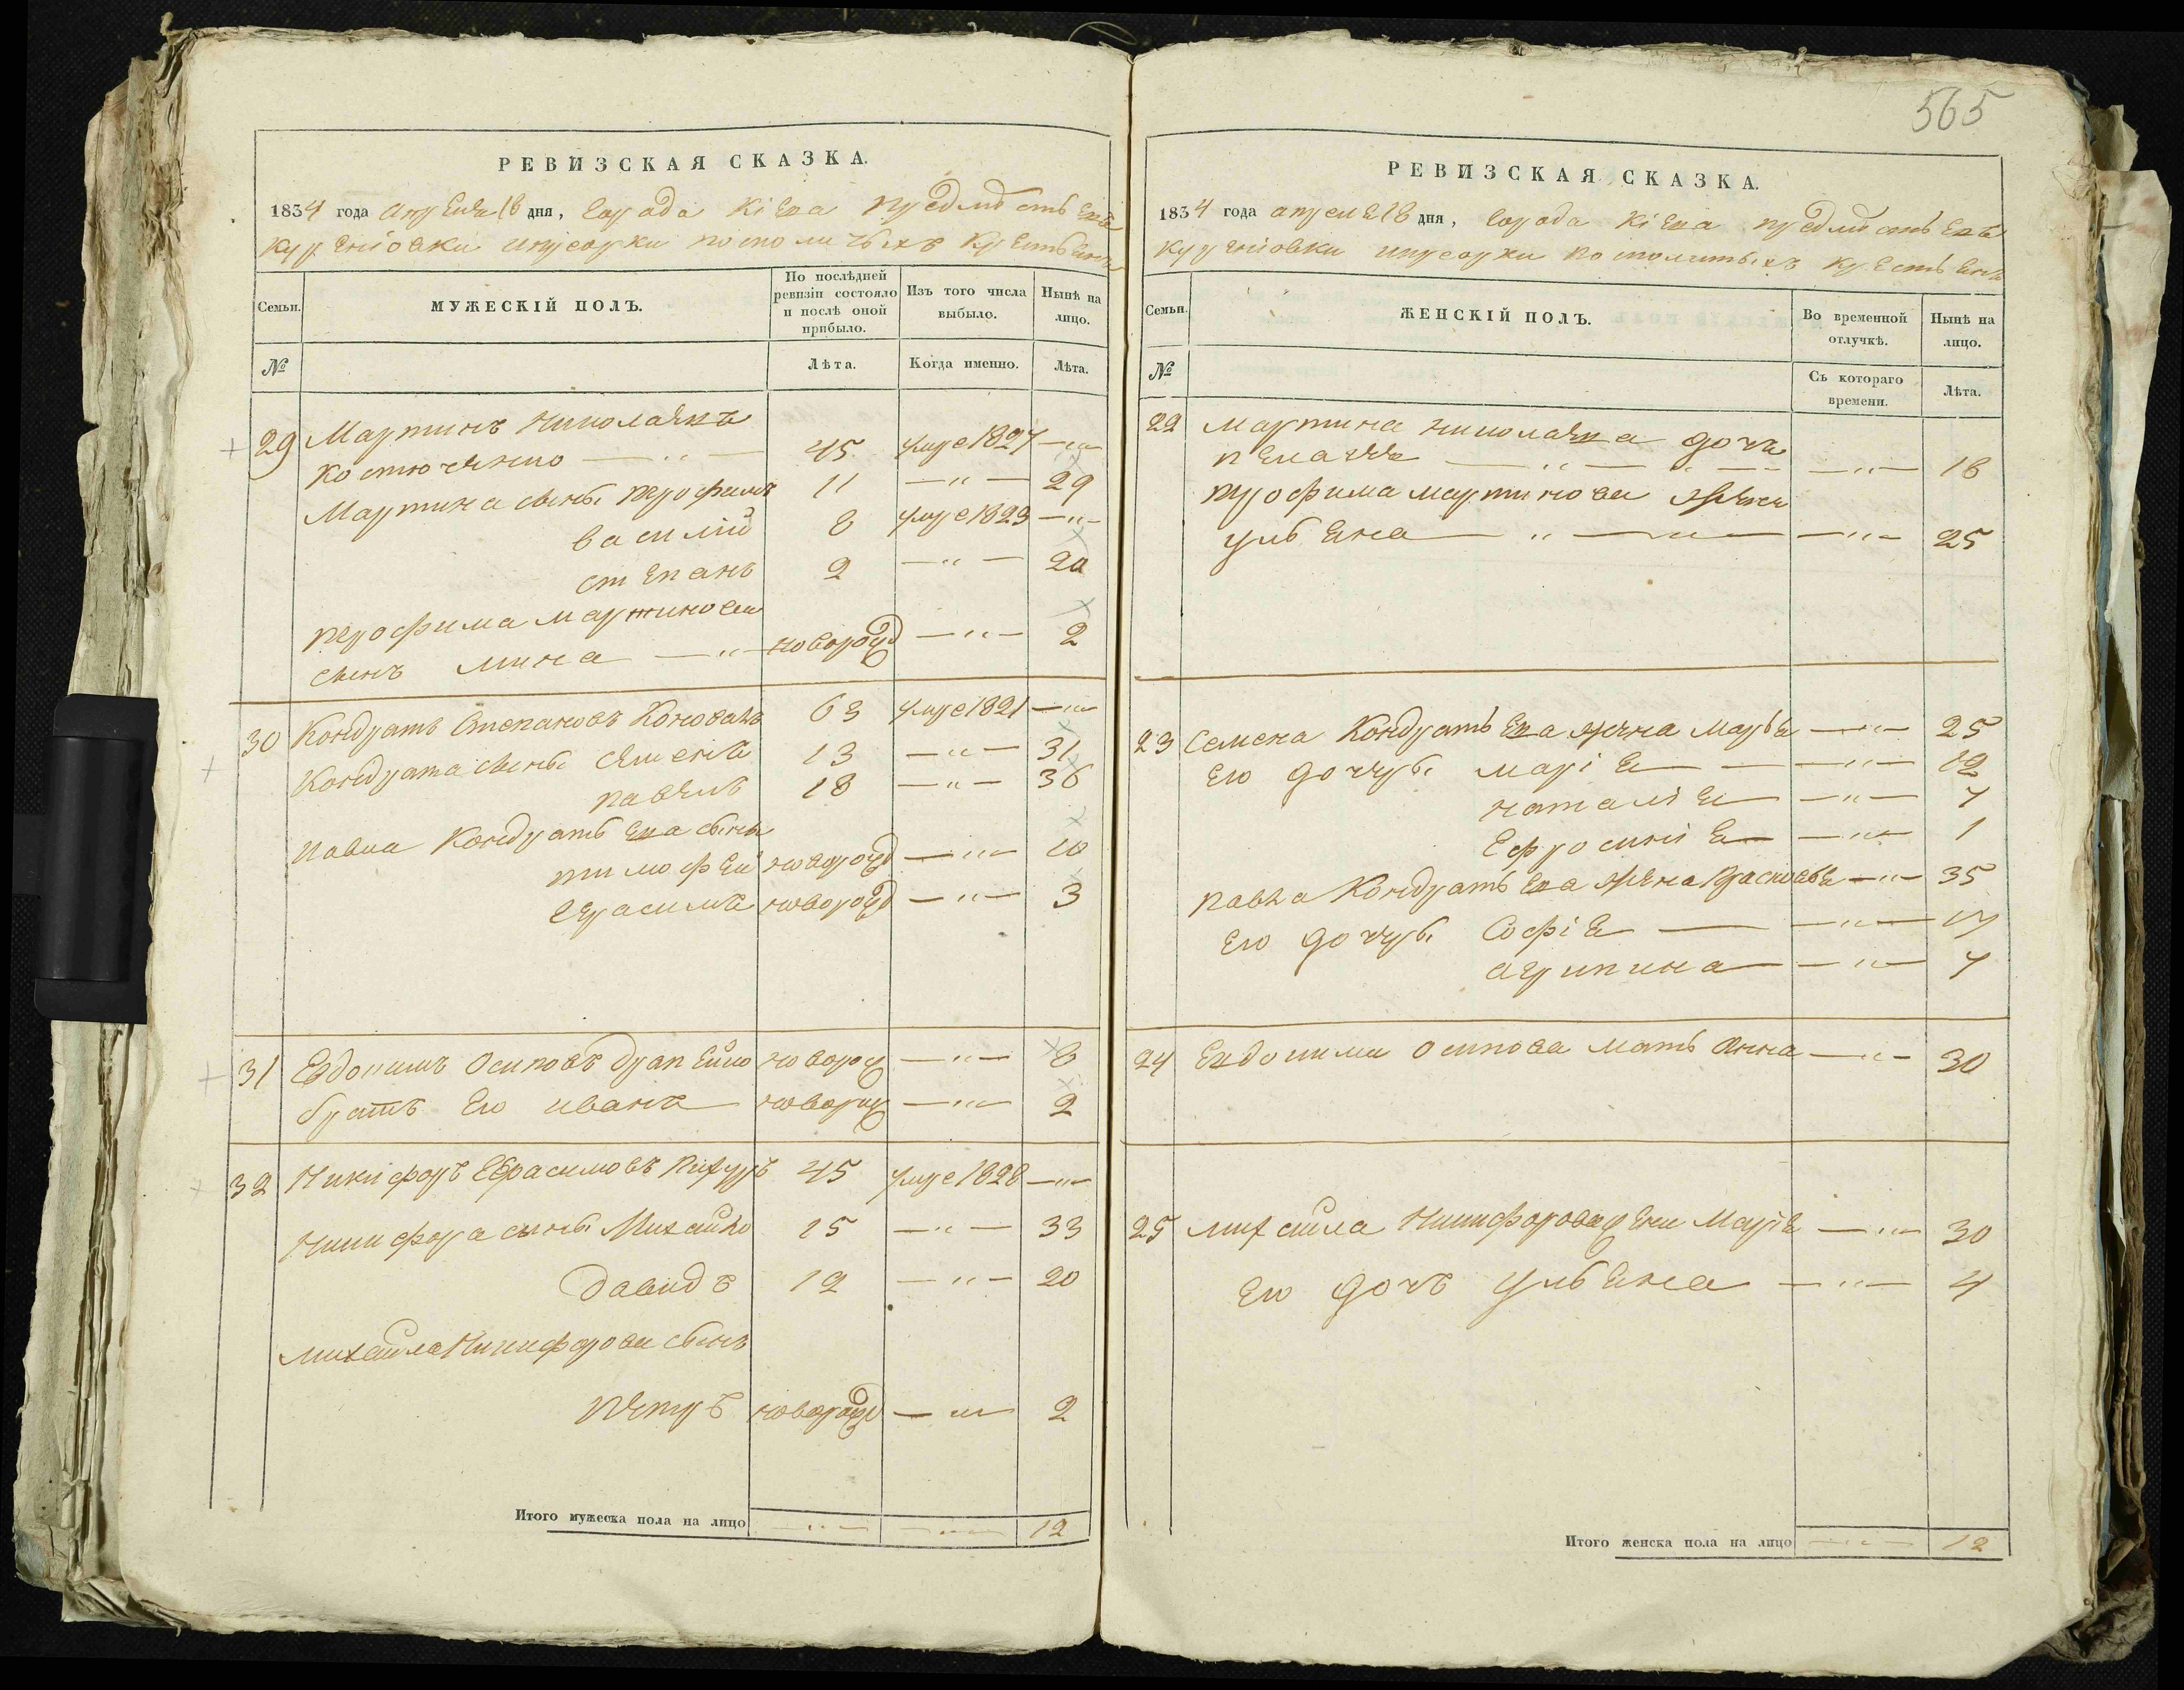 565
РЕВИЗСКАЯ СКАЗКА.
1834 года апреля 18 дня, города Кіева предместьевъ
Куреніовки ипріорки посполитыхъ крестьянъ
Семьи.
МУЖЕСКІЙ ПОЛЪ.
По послѣдней ревизіи состояло и послѣ оной прибыло.
Изъ того числа выбыло.
Нынѣ на лицо.
№
Лѣта.
Когда именно.
Лѣта.
29 Мартинъ Николаявъ
Костюченко — 45 умре 1827 —
Мартина сыны трофимъ 11 — 29
василій 8 умре 1823 —
степанъ 2 — 20
трофима мартинова
сынъ мина — новорожд — 2
30 Кондратъ Степановъ Коновалъ 63 умре 1821 —
Кондрата сыны семенъ 13 — 31
павелъ 18 — 36
павла Кондратьева сыны
тимофей новорожд — 10
герасимъ новорожд — 3
31 Евдокимъ Осиповъ драпейко новорож — 8
братъ его иванъ новорож — 2
32 Никифоръ Ефрасимовъ 45 умре 1828 —
Никифора сыны Михайло 15 — 33
Давидъ 12 — 20
михайла Никифорова сынъ
петръ новорожд — 2
Итого мужеска пола на лицо — — 12
РЕВИЗСКАЯ СКАЗКА.
1834 года апреля 18 дня, города Кіева предместьевъ
Куреніовки ипріорки посполитыхъ крестьянъ
Семьи.
ЖЕНСКІЙ ПОЛЪ.
Во временной отлучкѣ.
Нынѣ на лицо.
№
Съ котораго времени.
Лѣта.
22 мартина николаява дочь
пелагея — — 18
трофима мартинова жена
ульяна — — 25
23 Семена Кондратьева жена марья — 25
его дочеры марія — 12
наталія — 7
Ефросинія — 1
павла Кондратьева жена Прасковья — 35
его дочеры Софія — 17
агрипина — 7
24 Евдокима осипова мать Анна — 30
25 михайла Никифорова жена Марія — 30
его дочъ ульяна — 4
Итого женска пола на лицо — 12